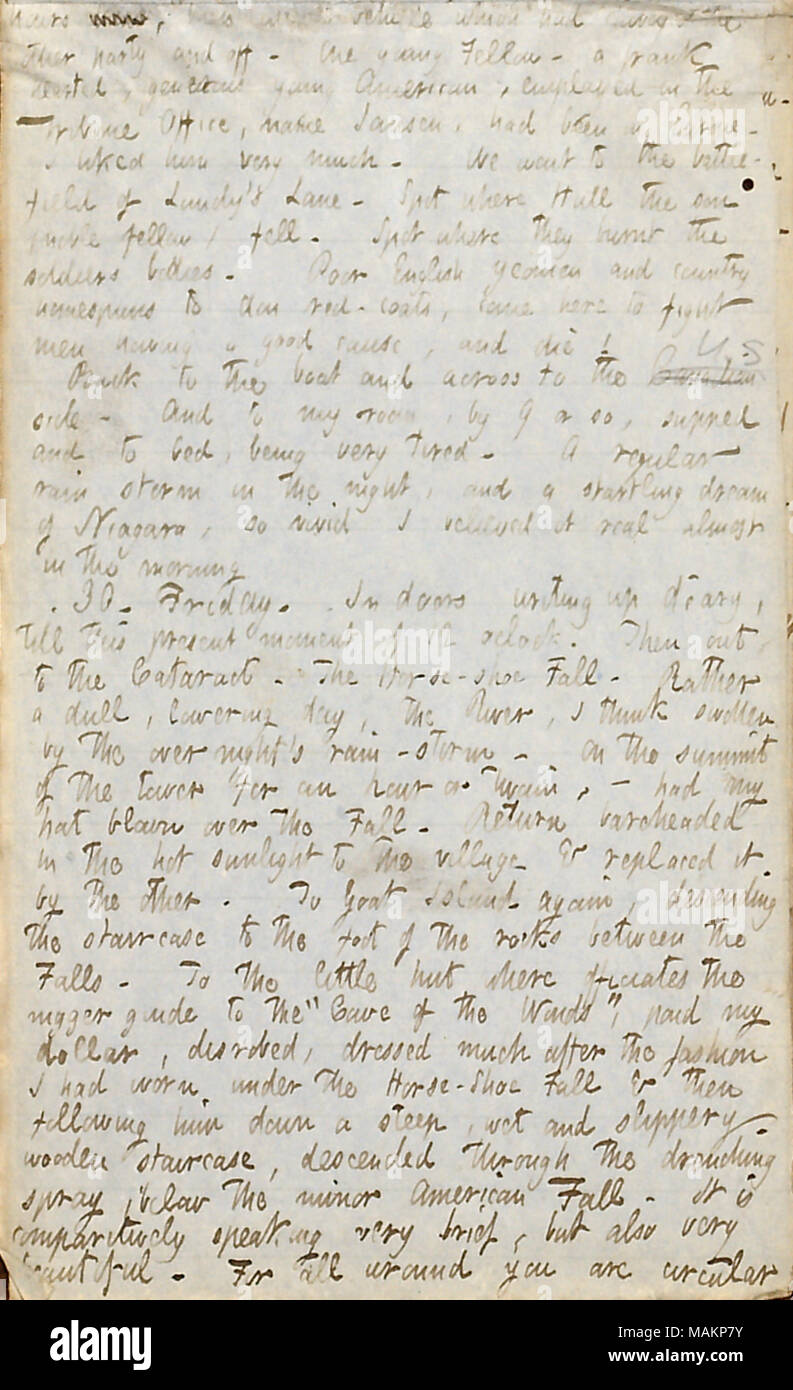 hours now, vehicle which had
other party and off - One young Fellow - a frank
hearted, generous young American, employed in the
Tribune Office, name Jansen, had been in
I liked him very much - We went to the battle-
field of Lundy's Lane - Spot where Hull the son
(noble fellow) fell - Spot where they burnt the
soldiers bodies - Poor English yeomen and country
homespuns to don red-coats, come here to fight
men having a good cause, and die!
U.S
Back to the boat and across to the Canadian
side - And to my room, by 9 or so, supped
and to bed, being very tired - A regular
rain storm in the night, and a startling dream
of Niagara, so vivid I believed it real almost
in the morning
. 30 - Friday - . In doors writing up diary,
till this present moment of 12 oclock. Then out
to the Cataract - The Horse-shoe Fall - Rather
a dull, lowering day, the River, I think swollen
by the over night's rain-storm - On the summit
of the tower for an hour or twain, - had my
hat blown over the Fall - Return bareheaded
in the hot sunlight to the village & replaced it
by the other. To Goat Island again, descending
the staircase to the foot of the rocks between the
Falls - To the little hut where officiates the
nigger guide to the "Cave of the Winds", paid my
dollar, disrobed, dressed much after the fashion
I had worn under the Horse-Shoe Fall & then
following him down a steep, wet and slippery
wooden staircase, descended through the drenching
spray, below the minor American Fall - It is
comparitively speaking very brief, but also very
beautiful - For all around you are circular
alamy
Image ID: MAKP7Y
www.alamy.com